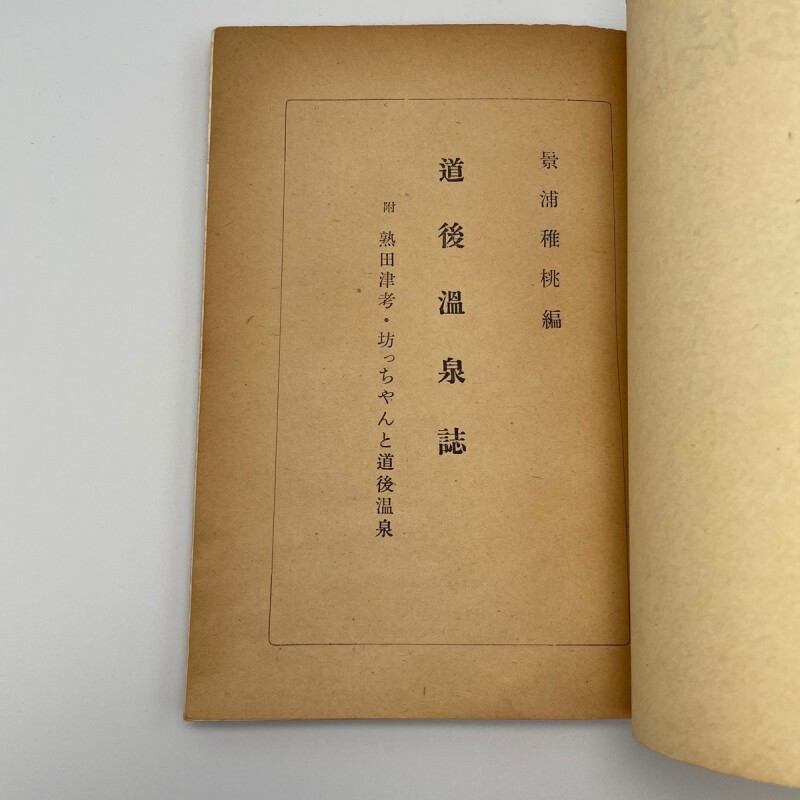 景浦稚桃編
道後溫泉誌
附 熟田津考・坊っちゃんと道後溫泉